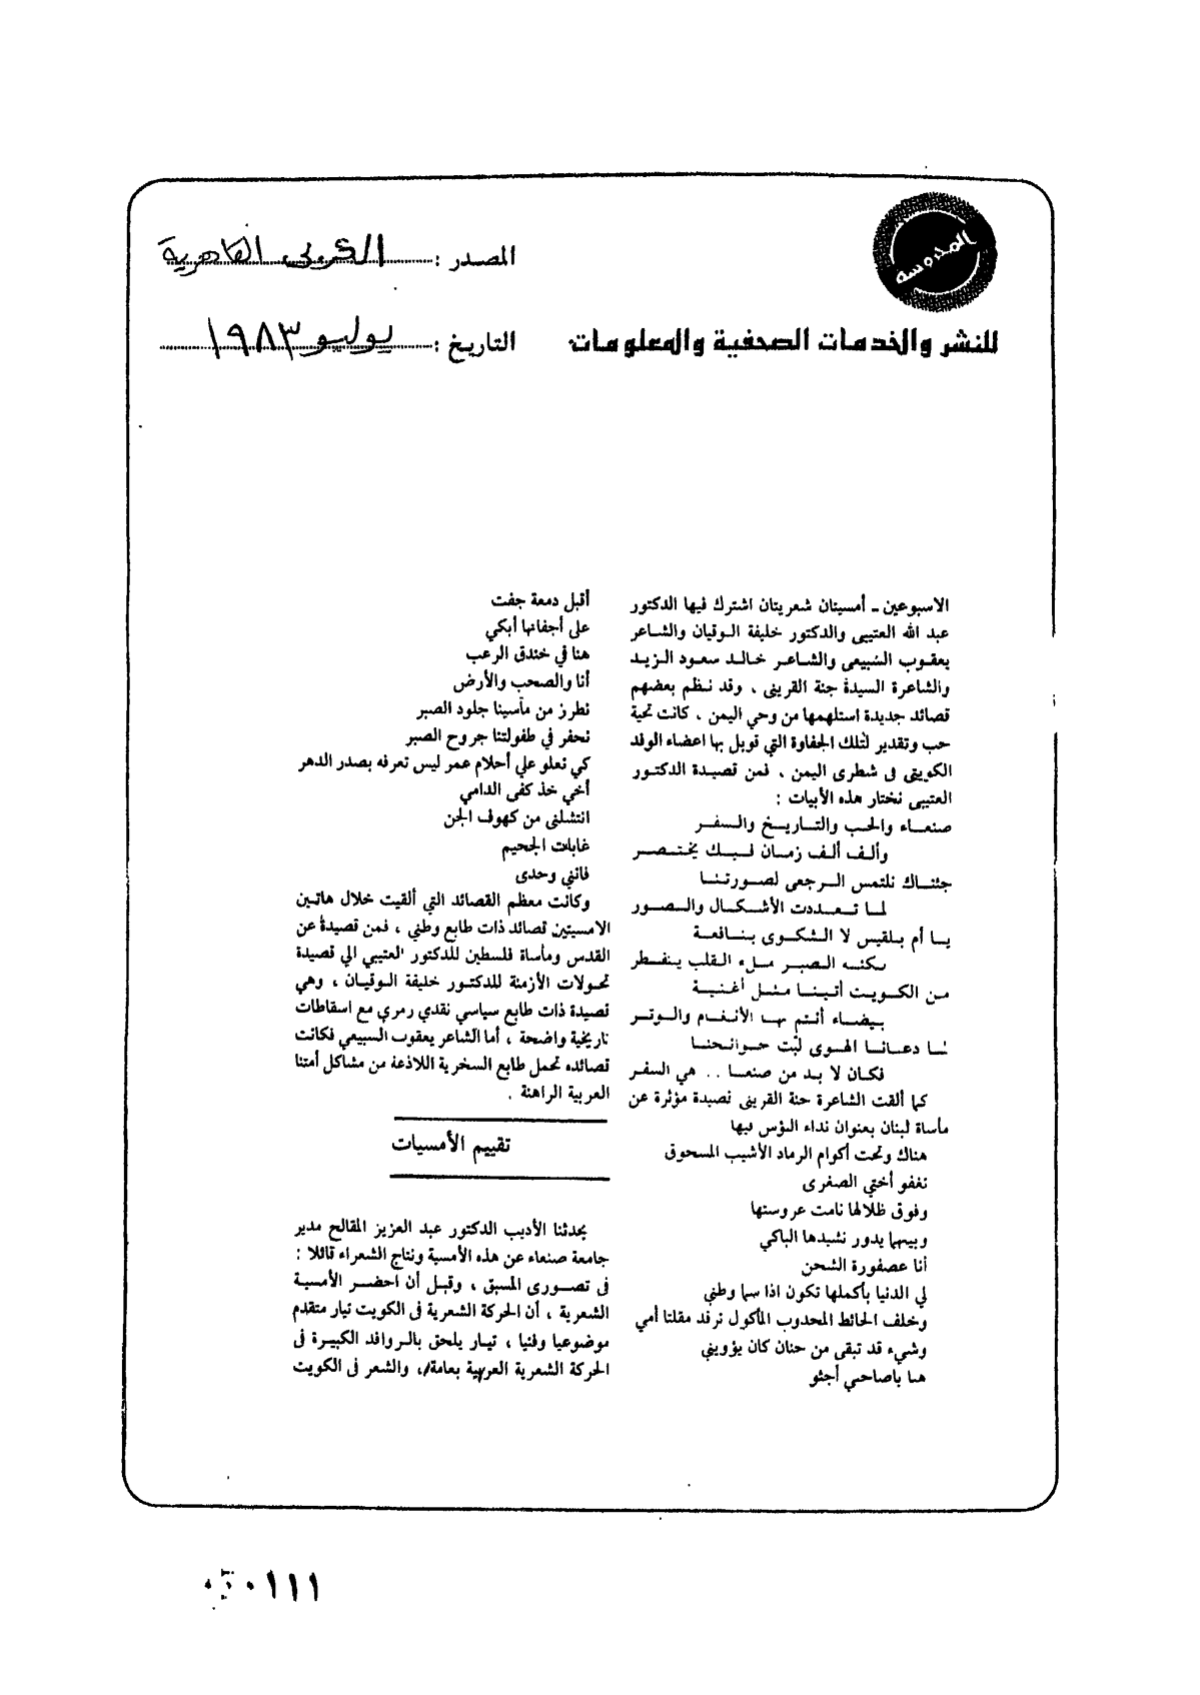 المدروسة
للنشر والخدمات الصحفية والمعلومات
المصدر : العربى القاهرية
التاريخ : يوليو ١٩٨٣
الاسبوعين ـ أمسيتان شعريتان اشترك فيها الدكتور
عبد الله العتيبى والدكتور خليفة الوقيان والشاعر
يعقوب السبيعى والشاعر خالد سعود الزيد
والشاعرة السيدة جنة القرينى ، وقد نظم بعضهم
قصائد جديدة استلهمها من وحي اليمن ، كانت تحية
حب وتقدير لتلك الحفاوة التي قوبل بها اعضاء الوفد
الكويتى فى شطرى اليمن ، فمن قصيدة الدكتور
العتيبى نختار هذه الأبيات :
صنعاء والحب والتاريخ والسفر
وألف ألف زمان فيك يختصر
جئناك نلتمس الرجعى لصورتنا
لما تعددت الأشكال والصور
يا أم بلقيس لا الشكوى بنافعة
لكنه الصبر ملء القلب ينفطر
من الكويت أتينا مثل أغنية
بيضاء أنتم بها الأنغام والوتر
لما دعانا الهوى لبت جوانحنا
فكان لا بد من صنعا .. هي السفر
كما ألقت الشاعرة جنة القرينى قصيدة مؤثرة عن
مأساة لبنان بعنوان نداء البؤس فيها
هناك وتحت أكوام الرماد الأشيب المسحوق
تغفو أختي الصغرى
وفوق ظلالها نامت عروستها
وبينهما يدور نشيدها الباكي
أنا عصفورة الشحن
لي الدنيا بأكملها تكون اذا سما وطني
وخلف الحائط المحدوب المأكول ترقد مقلتا أمي
وشيء قد تبقى من حنان كان يؤويني
هنا ياصاحبي أجثو
أقبل دمعة جفت
على أجفانها أبكي
هنا في خندق الرعب
أنا والصحب والأرض
نطرز من مآسينا جلود الصبر
نحفر في طفولتنا جروح الصبر
كي تعلو على أحلام عمر ليس تعرفه بصدر الدهر
أخي خذ كفى الدامي
انتشلنى من كهوف الجن
غابات الجحيم
فانني وحدى
وكانت معظم القصائد التي ألقيت خلال هاتين
الامسيتين قصائد ذات طابع وطني ، فمن قصيدة عن
القدس ومأساة فلسطين للدكتور العتيبي الي قصيدة
تحولات الأزمنة للدكتور خليفة الوقيان ، وهي
قصيدة ذات طابع سياسي نقدي رمري مع اسقاطات
تاريخية واضحة ، أما الشاعر يعقوب السبيعي فكانت
قصائده تحمل طابع السخرية اللاذعة من مشاكل أمتنا
العربية الراهنة .
تقييم الأمسيات
يحدثنا الأديب الدكتور عبد العزيز المقالح مدير
جامعة صنعاء عن هذه الأمسية ونتاج الشعراء قائلا :
فى تصورى المسبق ، وقبل أن احضر الأمسية
الشعرية ، أن الحركة الشعرية فى الكويت تيار متقدم
موضوعيا وفنيا ، تيار يلحق بالروافد الكبيرة فى
الحركة الشعرية العربية بعامة ، والشعر فى الكويت
٠١١١